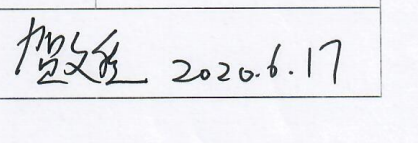 贺文 2020.6.17